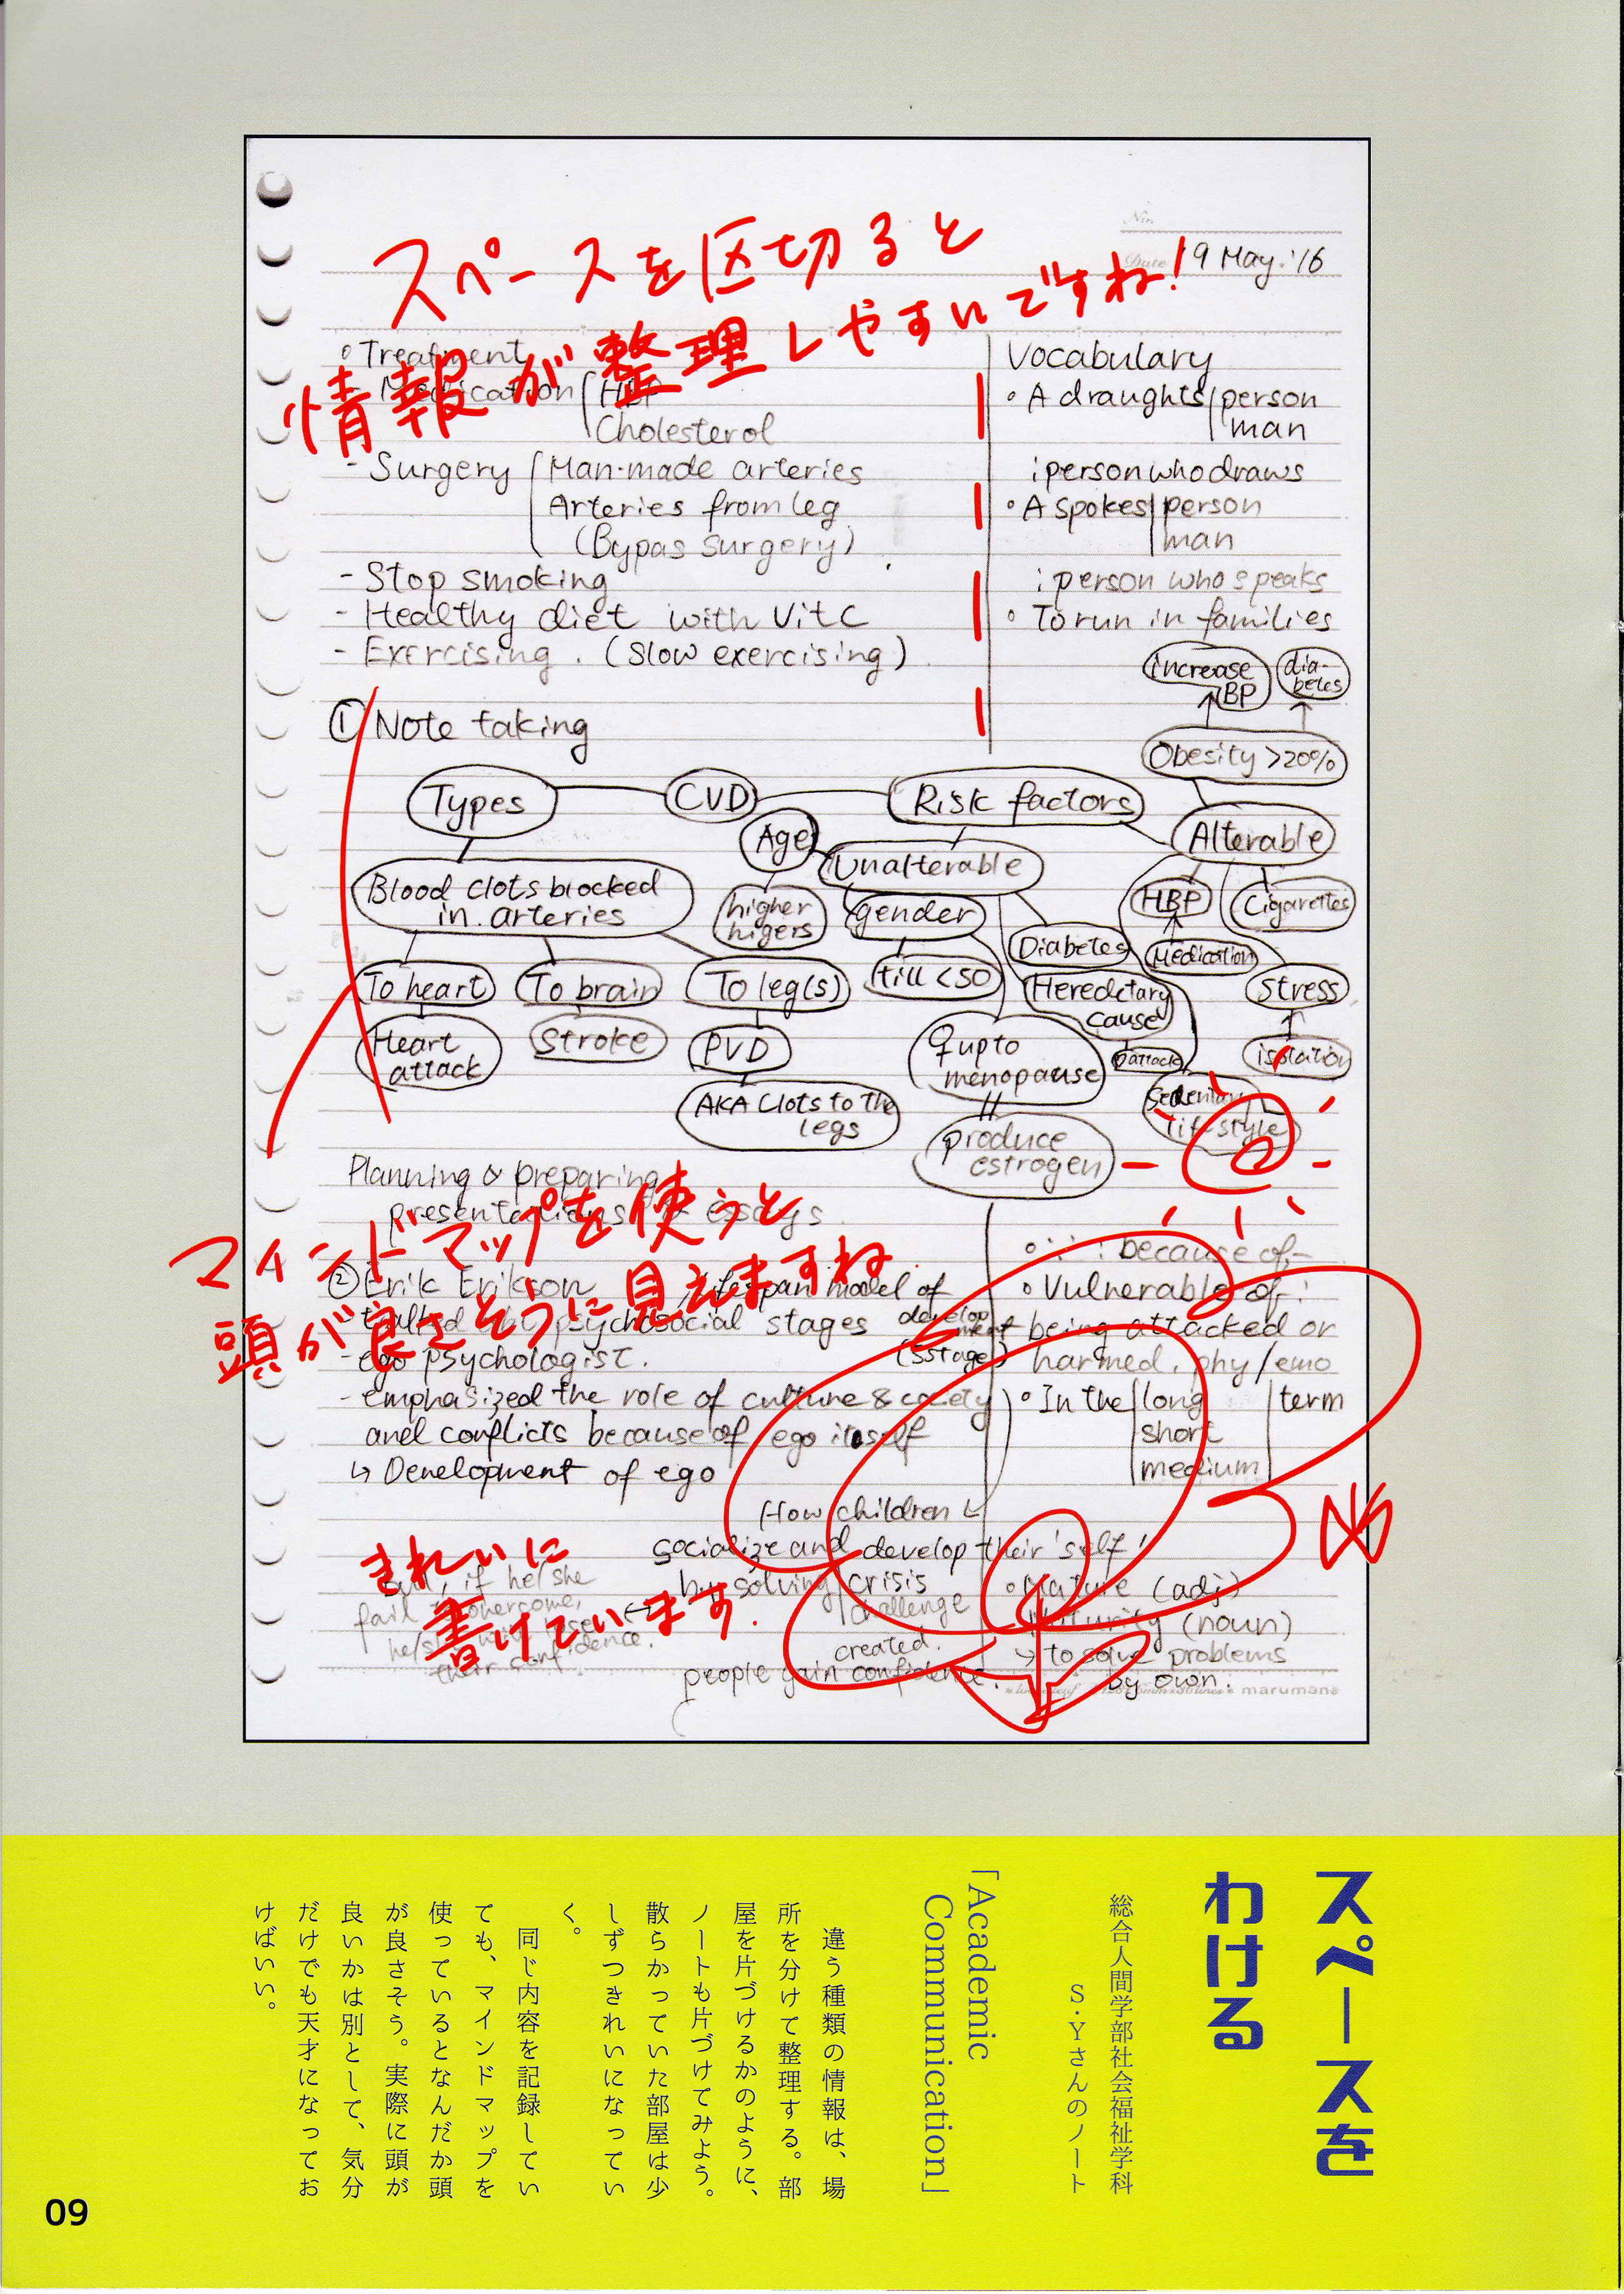 No.
Date 19 May. '16
スペースを区切ると
情報が整理しやすいですね!
。Treatment
- Medication HBP
Cholesterol
- Surgery Man-made arteries
Arteries from leg
(Bypas surgery)
- Stop smoking
- Healthy diet with Vit C
- Exercising. (Slow exercising)
Vocabulary
・A draughts person
man
; person who draws
・A spokes person
man
; person who speaks
・To run in families
① Note taking
increase BP
dia-
betes
Obesity >20%
Types
CVD
Risk factors
Age
Unalterable
Alterable
Blood clots blocked
in arteries
higher
gender
HBP
Cigarettes
Diabetes
Medication
To heart
To brain
To leg(s)
till <50
Heredetary
cause
Stress
Heart
attack
Stroke
PVD
♀ up to
menopause
isolation
AKA Clots to the
legs
life style
produce
estrogen
Planning & preparing
presentations & essays
マインドマップを使うと
頭が良さそうに見えますね
② Erik Erikson, lifespan model of
develop
ment
(5stage)
- talked abt psychosocial stages
- ego psychologist.
- emphasized the role of culture & society
and conflicts because of ego itself
↳ Development of ego
・∵ : because of~
・Vulnerable of :
being attacked or
harmed, phy/emo
・In the long term
short
medium
How children
socialize and develop their 'self'
by solving crisis
challenge
created.
people gain confidence.
if he/she
fail to overcome,
he/she will lose
their confidence.
きれいに
書けています.
・Mature (adj)
Maturity (noun)
→ to solve problems
by own.
marumanⓇ
スペースを
わける
総合人間学部社会福祉学科
S・Yさんのノート
「Academic
Communication」
違う種類の情報は、場
所を分けて整理する。部
屋を片づけるかのように、
ノートも片づけてみよう。
散らかっていた部屋は少
しずつきれいになってい
く。
同じ内容を記録してい
ても、マインドマップを
使っているとなんだか頭
が良さそう。実際に頭が
良いかは別として、気分
だけでも天才になってお
けばいい。
09